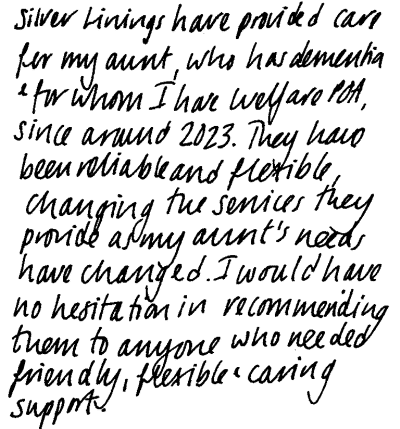 Silver Linings have provided care
for my aunt, who has dementia
& for whom I have welfare POA,
since around 2023. They have
been reliable and flexible,
changing the services they
provide as my aunt's needs
have changed. I would have
no hesitation in recommending
them to anyone who needed
friendly, flexible & caring
support.